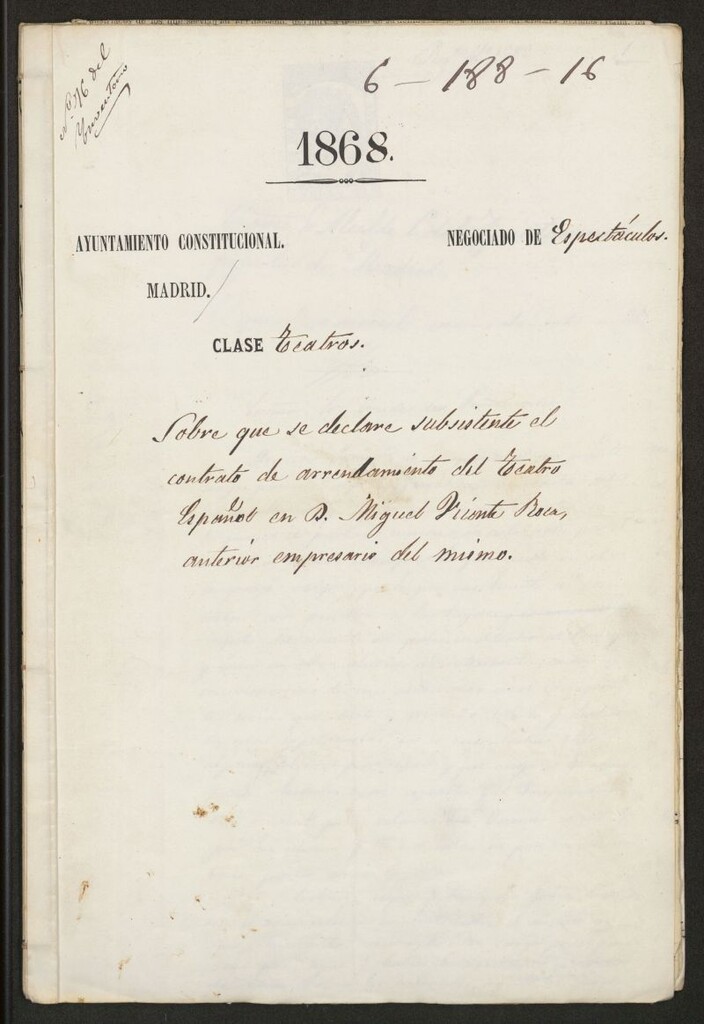 Nº 16 del
Ynventario
6 - 188 - 16
1868.
AYUNTAMIENTO CONSTITUCIONAL.
NEGOCIADO DE Espectáculos.
MADRID.
CLASE Teatros.
Sobre que se declare subsistente el
contrato de arrendamiento del Teatro
Español en D. Miguel Vicente Roca,
anterior empresario del mismo.